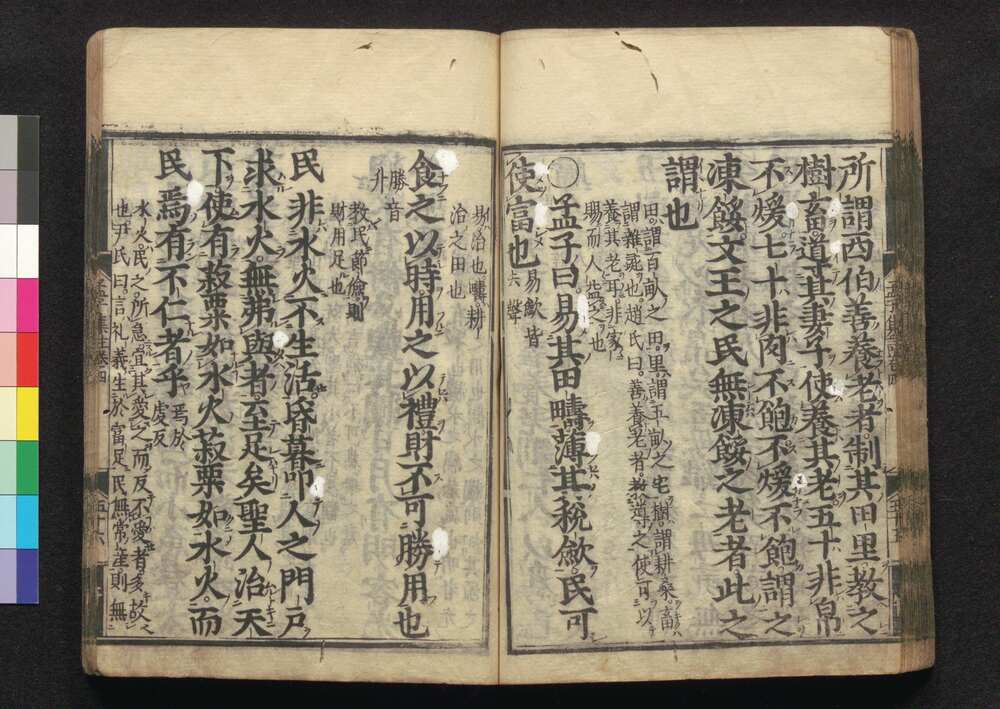 所謂西伯善養老者制其田里教之
樹畜道其妻子使養其老五十非帛
不煖七十非肉不飽不煖不飽謂之
凍餒文王之民無凍餒之老者此之
謂也
田謂百畝之田里謂五畝之宅樹謂耕桑畜
謂雞彘也趙氏曰善養老者教導之使可以
養其老耳非家
賜而人益之也
○孟子曰易其田疇薄其稅歛民可
使富也
易歛皆
去聲
易治也疇耕
治之田也
食之以時用之以禮財不可勝用也
勝音
升
教民節儉則
財用足也
民非水火不生活昏暮叩人之門戶
求水火無弗與者至足矣聖人治天
下使有菽粟如水火菽粟如水火而
民焉有不仁者乎
焉於
虔反
水火民之所急宜其愛之而反不愛者多故
也尹氏曰言礼義生於富足民無常産則無